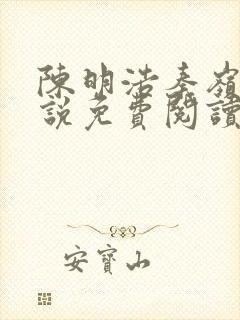 陳明浩秦嶺
說免費閱讀
安寶山